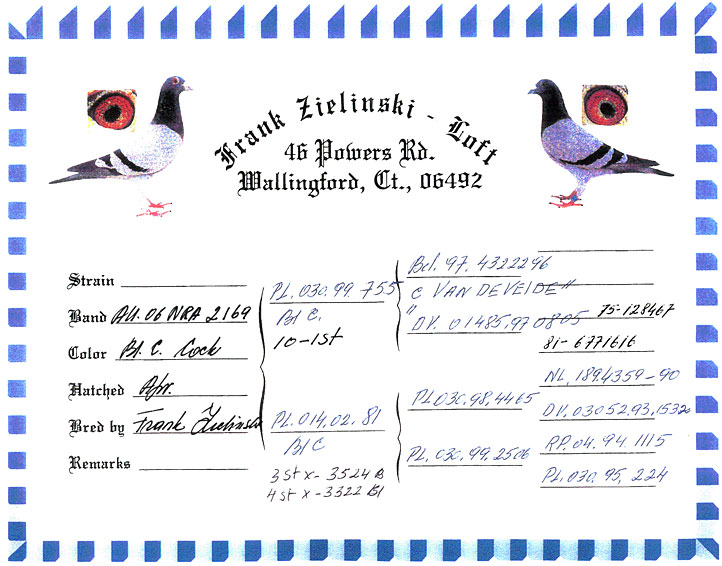 Frank Zielinski - Loft
46 Powers Rd.
Wallingford, Ct., 06492
Strain
Band AU. 06 NRA 2169
Color Bl. C. Cock
Hatched Apr.
Bred by Frank Zielinski
Remarks
PL. 030. 99. 755
Bl C.
10-1st
PL. 014. 02. 81
Bl C
3 st x - 3524 B
4 st x - 3322 Bl
Bel. 97. 4322296
C VAN DE VEIDE "
" DV. 01485.97 0805
PL 030. 98. 4465
PL. 030. 99. 2506
75-128467
81- 6771616
NL. 1894359-90
DV. 03052.93.1532
RP. 04. 94 1115
PL. 030. 95. 224